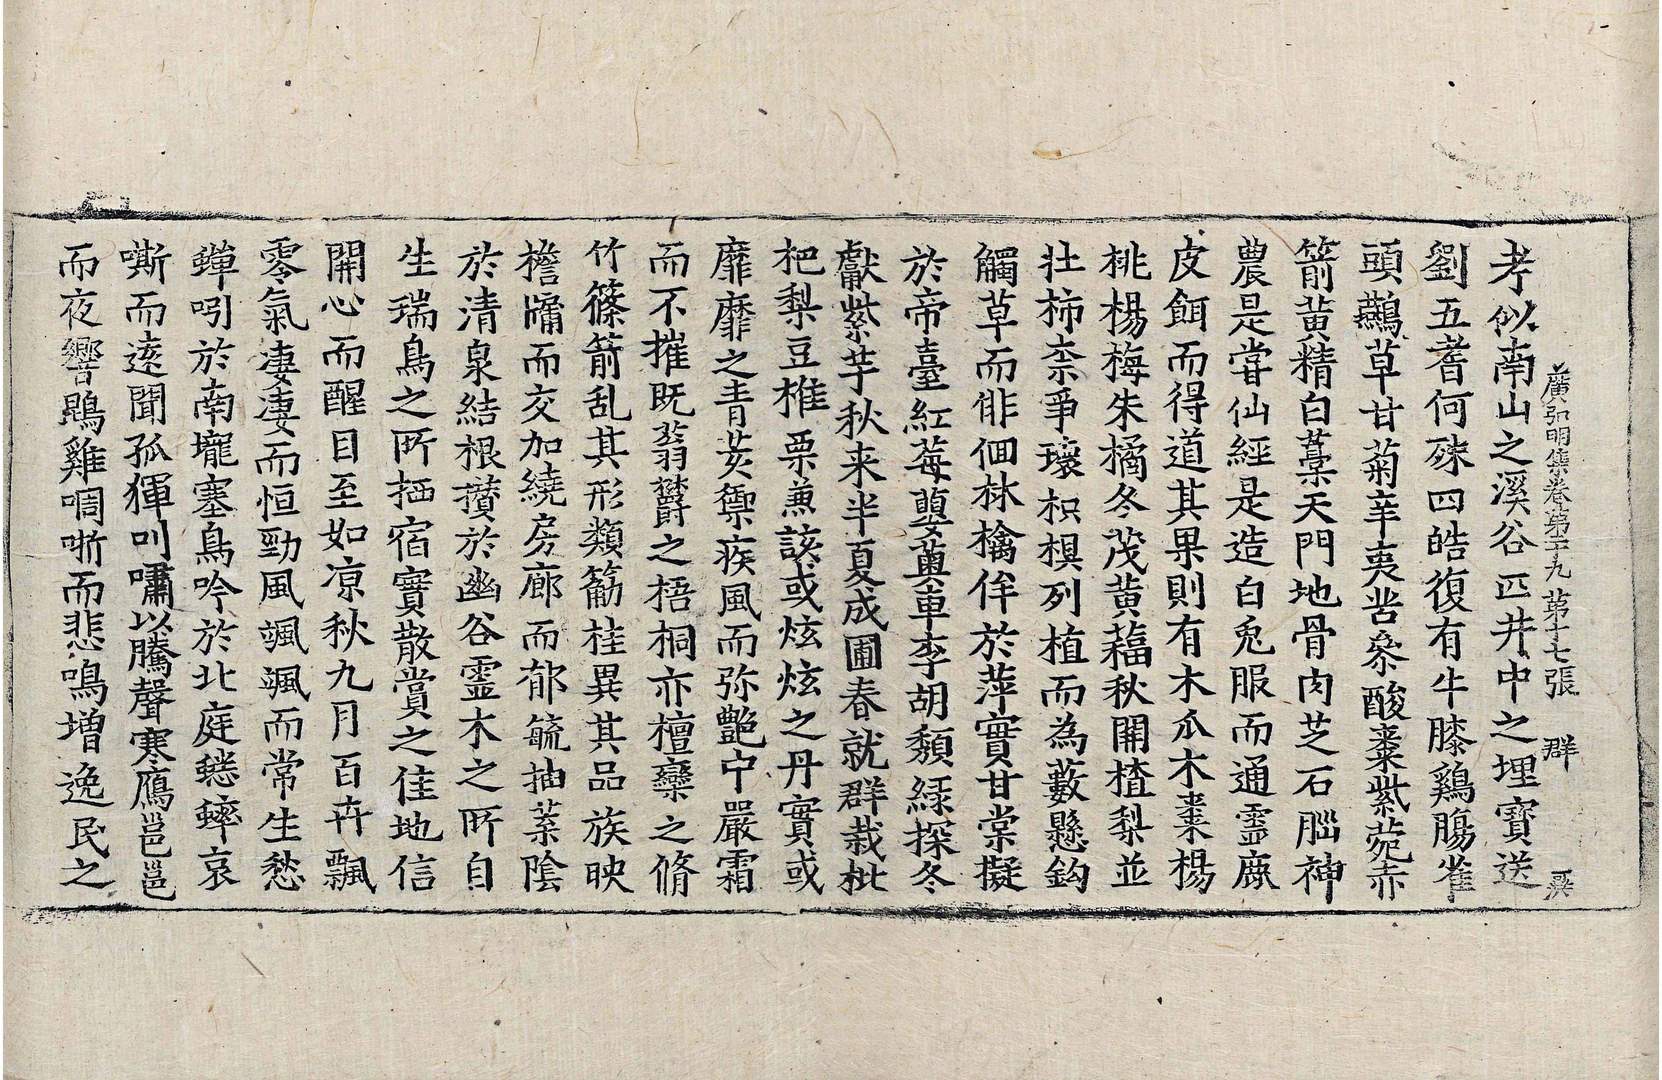 廣弘明集卷第二十九 第十七張 群
考似南山之溪谷匹井中之埋寶送
劉五耆何殊四皓復有牛膝鷄膓雀
頭鷰草甘菊辛夷苦參酸棗紫菀赤
箭黃精白藁天門地骨肉芝石腦神
農是嘗仙經是造白兎服而通靈鹿
皮餌而得道其果則有木瓜木棗楊
桃楊梅朱橘冬茂黃蕌秋開楂梨並
壯柿柰爭瓌枳椇列植而為藪懸鈎
觸草而俳佪林檎侔於萍實甘棠擬
於帝臺紅莓蘡薁車李胡頹緑探冬
獻紫芋秋来半夏成圃春就群栽枇
杷梨豆椎栗兼該或炫炫之丹實或
靡靡之青荄禦疾風而弥艷中嚴霜
而不摧既蓊欝之梧桐亦檀欒之脩
竹篠箭乱其形類簕桂異其品族映
檐牗而交加繞房廊而郁毓抽蘂陰
於清泉結根攢於幽谷霊木之所自
生瑞鳥之所栖宿實散賞之佳地信
開心而醒目至如凉秋九月百卉飄
零氣凄凄而恒勁風颯颯而常生愁
蟬吲於南壠塞鳥吟於北庭蟋蟀哀
嘶而遠聞孤猨叫嘯以騰聲寒鴈嗈嗈
而夜響鵾雞啁哳而悲鳴增逸民之